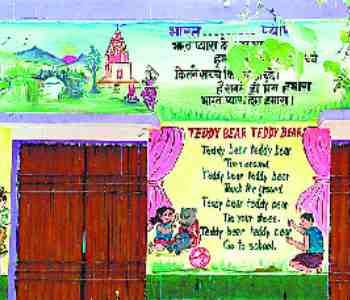 भारत ......... प्यारा
भारत प्यारा दे
कितने अच्छे कि
हैं सबसे ही प्रेम हमारा
भारत प्यारा देश हमारा।
TEDDY BEAR TEDDY BEAR
Teddy bear teddy bear
Turn around
Teddy bear teddy bear
Touch the ground
Teddy bear teddy bear
Tie your shoes.
Teddy bear teddy bear
Go to school.